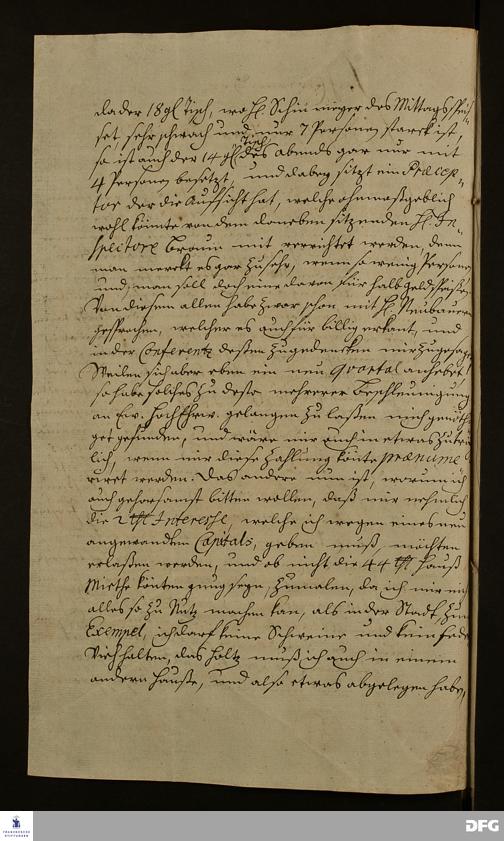 da der 18 gl Tisch, wo H. Schin meyer des Mittags spei-
set sehr schwach und nur 7 Personen starck ist,
so ist auch der 14 gl Tisch des abends gar nur mit
4 Personen besetzt, und dabey sitzt ein Præcep-
tor der die Aufsicht hat, welche ohnmaßgeblich
wohl könte von dem daneben sitzenden H. In-
spectore Braun mit verrichtet werden, denn
man mercket es gar zu sehr, wenn so wenig Personen
und man soll doch eine davon für halb geld speisen.
Von diesem allen habe zwar schon mit H. Neubauer
gesprochen, welcher es auch für billig erkant, und
in der Conferentz deßen zugedencken mir zugesagt.
Weilen sich aber eben ein neu Quartal anhebet
so habe solches zu desto mehrerer Beschleunigung
an Ew. HochEhrw. gelangen zu laßen mich genöthi-
get gefunden, und wäre mir auch in etwas zuträg-
lich, wenn mir diese Zahlung könte prænume-
riret werden. Das andere nun ist, warum ich
auch gehorsamst bitten wollen, daß mir nehmlich
die 2 thl Interesse, welche ich wegen eines neu
angewandten Capitals, geben muß, möchten
erlaßen werden, und ob nicht die 44 thl Hauß
Miethe könten gnug seyn, zumalen, da ich mir nicht
alles so zu Nutz machen kan, als in der Stadt, zum
Exempel, ich darf keine Schweine und kein feder
Vieh halten, das Holtz muß ich auch in einem
andern Hause, und also etwas abgelegen haben,
FRANCKESCHE STIFTUNGEN
DFG